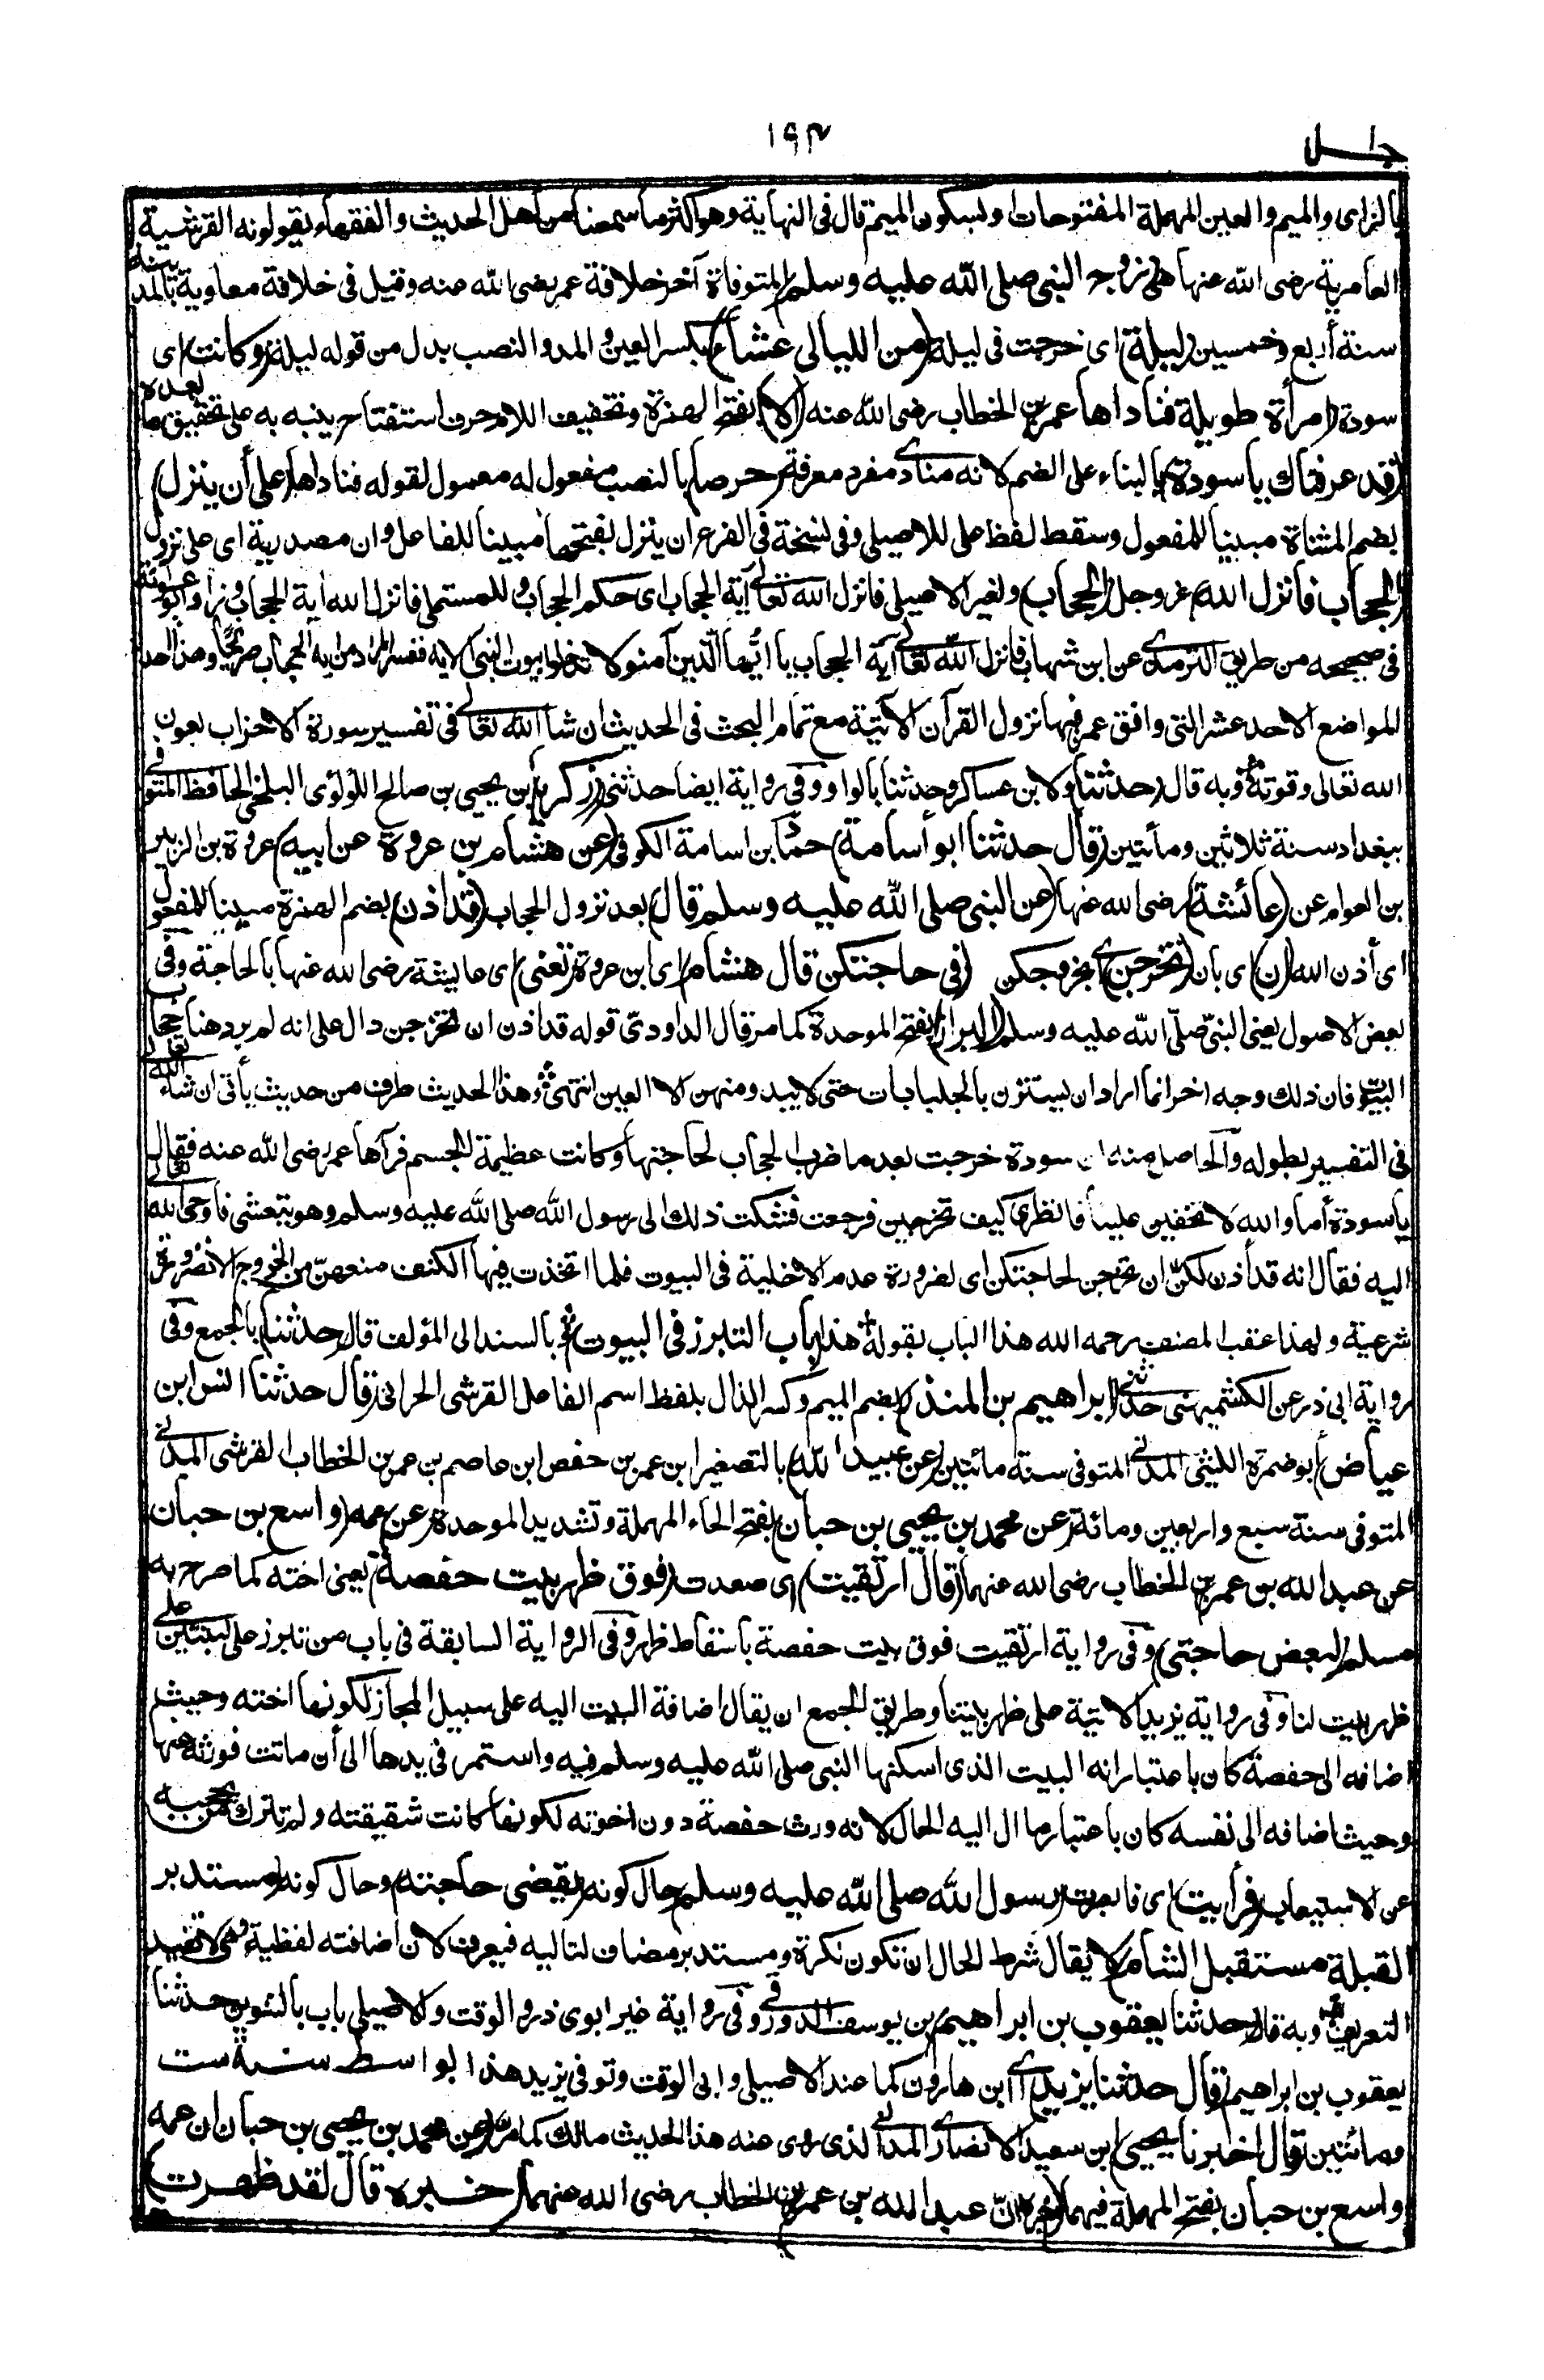 جلـ ١
١٩٣
بالزاى والميم والعين المهملة المفتوحات او بسكون الميم قال فى النهاية وهو اكثر ما سمعنا من أهل الحديث والفقهاء يقولونه القرشية
العامرية رضى الله عنها (زوج النبى صلى الله عليه وسلم) المتوفاة آخر خلافة عمر رضى الله عنه وقيل فى خلافة معاوية بالمدينة
سنة أربع وخمسين (ليلة) اى خرجت فى ليلة (من الليالى عشاء) بكسر العين والمد والنصب بدل من قوله ليلة (وكانت) اى
سودة (امرأة طويلة فناداها عمر بن الخطاب رضى الله عنه (ألا) بفتح الهمزة وتخفيف اللام حرف استفتاح ينبه به على تحقيق ما بعده
(قد عرفناك يا سودة) بالبناء على الضم لانه منادى مفرد معرفة (حرصا) بالنصب مفعول له معمول لقوله فناداها (على أن ينزل)
بضم المثناة مبنيا للمفعول وسقط لفظ على للاصيلى وفى نسخة فى الفرع ان ينزل بفتحها مبنيا للفاعل وان مصدرية اى على نزول
(الحجاب فانزل الله) عز وجل (الحجاب) ولغير الاصيلى فانزل الله تعالى آية الحجاب اى حكم الحجاب وللمستملى فانزل الله آية الحجاب وزاد ابو عوانة
فى صحيحه من طريق الترمذى عن ابن شهاب فانزل الله تعالى آية الحجاب يا ايها الذين آمنوا لا تدخلوا بيوت النبى الآية ففسر المراد من آية الحجاب صريحا وهذا احد
المواضع الاحد عشر التى وافق عمر فيها نزول القرآن الآتية مع تمام البحث فى الحديث ان شاء الله تعالى فى تفسير سورة الاحزاب بعون
الله تعالى وقوته وبه قال (حدثنا) ولابن عساكر وحدثنا بالواو وفى رواية ايضا حدثنى (زكريا) بن يحيى بن صالح اللؤلؤى البلخى الحافظ المتوفى
ببغداد سنة ثلاثين ومأتين (قال حدثنا ابو أسامة) حماد بن اسامة الكوفى (عن هشام بن عروة عن ابيه) عروة بن الزبير
بن العوام عن (عائشة) رضى الله عنها (عن النبى صلى الله عليه وسلم قال) بعد نزول الحجاب (قد اذن) بضم الهمزة مبنيا للمفعول
اى أذن الله (ان) اى بان (تخرجن) اى بخروجكن (فى حاجتكن قال هشام) اى ابن عروة (تعنى) اى عايشة رضى الله عنها بالحاجة وفى
بعض الاصول يعنى النبى صلى الله عليه وسلم (البراز) بفتح الموحدة كما مر قال الداودى قوله قد اذن ان تخرجن دال على انه لم يرد هنا حجاب
البيوت فان ذلك وجه اخر انما اراد ان يستترن بالجلبابات حتى لا يبدو منهن الا العين انتهى وهذا الحديث طرف من حديث يأتى ان شاء الله تعالى
فى التفسير بطوله والحاصل منه ان سودة خرجت بعد ما ضرب الحجاب لحاجتها وكانت عظيمة الجسم فرآها عمر رضى الله عنه فقال
يا سودة أما والله لا تخفين علينا فانظرى كيف تخرجين فرجعت فشكت ذلك الى رسول الله صلى الله عليه وسلم وهو يتعشى فاوحى الله تعالى
اليه فقال انه قد أذن لكن ان تخرجن لحاجتكن اى لضرورة عدم الاخلية فى البيوت فلما اتخذت فيها الكنف منعهن من الخروج الا لضرورة
شرعية ولهذا عقب المصنف رحمه الله هذا الباب بقوله هذا (باب التبرز فى البيوت) وبالسند الى المؤلف قال (حدثنا) بالجمع وفى
رواية ابى ذر عن الكشميهنى حدثنى (ابراهيم بن المنذر) بضم الميم وكسر الذال بلفظ اسم الفاعل القرشى الحرانى (قال حدثنا انس ابن
عياض) أبو ضمرة الليثى المدنى المتوفى سنة مائتين (عن عبيد الله) بالتصغير ابن عمر بن حفص ابن عاصم بن عمر بن الخطاب القرشى المدنى
المتوفى سنة سبع واربعين ومائة (عن محمد بن يحيى بن حبان) بفتح الحاء المهملة وتشديد الموحدة (عن) عمه (واسع بن حبان
عن عبد الله بن عمر بن الخطاب رضى الله عنهما (قال ارتقيت) اى صعدت (فوق ظهر بيت حفصة) يعنى اخته كما صرح به
مسلم (لبعض حاجتى) وفى رواية ارتقيت فوق بيت حفصة باسقاط ظهر وفى الرواية السابقة فى باب من تبرز على لبنتين على
ظهر بيت لنا وفى رواية يزيد الآتية على ظهر بيتنا وطريق الجمع ان يقال اضافة البيت اليه على سبيل المجاز لكونها اخته وحيث
اضافه الى حفصة كان باعتبار انه البيت الذى اسكنها النبى صلى الله عليه وسلم فيه واستمر فى يدها الى أن ماتت فورثه عنها
وحيث اضافه الى نفسه كان باعتبار ما آل اليه الحال لانه ورث حفصة دون اخوته لكونها كانت شقيقته ولم تترك من يحجبه
عن الاستيعاب (فرأيت) اى فابصرت (رسول الله صلى الله عليه وسلم) حال كونه (يقضى حاجته) وحال كونه (مستدبر
القبلة مستقبل الشام) لا يقال شرط الحال ان تكون نكرة ومستدبر مضاف لتاليه فيعرف لان اضافته لفظية وهى لا تفيد
التعريف وبه قال (حدثنا يعقوب بن ابراهيم) بن يوسف الدورقى وفى رواية غير ابوى ذر والوقت والاصيلى باب بالتنوين حدثنا
يعقوب بن ابراهيم (قال حدثنا يزيد) اى ابن هارون كما عند الاصيلى وابى الوقت وتوفى يزيد هذا بواسط سنة ست
ومائتين (قال اخبرنا يحيى) ابن سعيد الانصارى المدنى الذى روى عنه هذا الحديث مالك كما مر (عن محمد بن يحيى بن حبان ان عمه
واسع بن حبان بفتح المهملة فيهما (اخبره ان عبد الله بن عمر بن الخطاب رضى الله عنهما (اخبره قال لقد ظهرت)